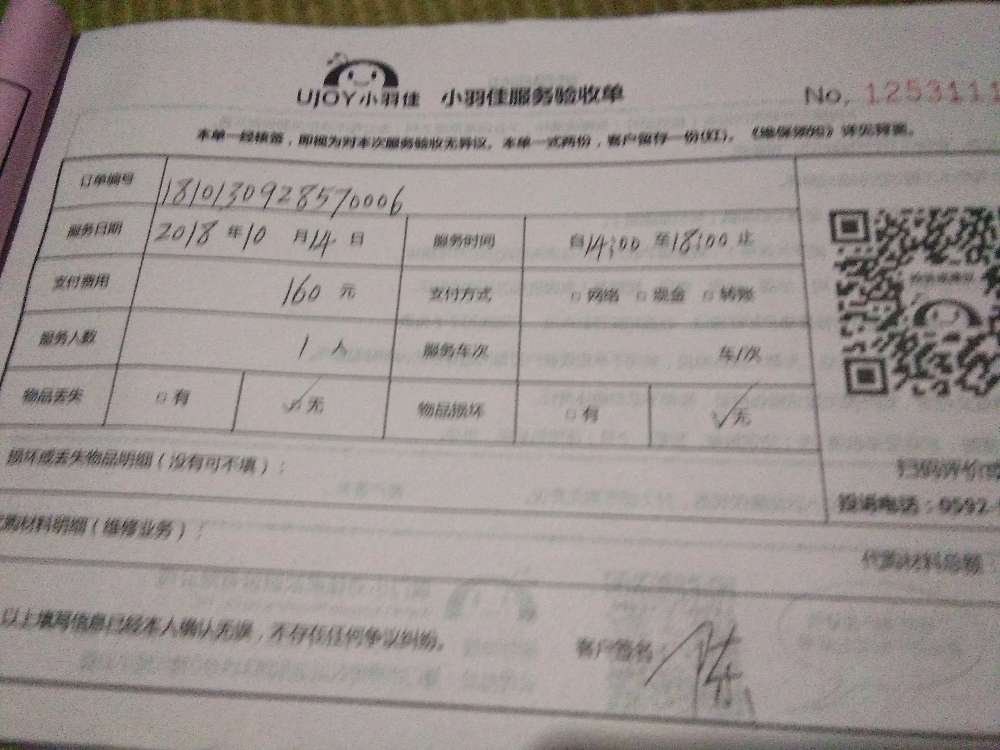 UJOY小羽佳 小羽佳服务验收单 No. 1253111
本单一经核签，即视为对本次服务验收无异议。本单一式两份，客户留存一份(红)。《维保须知》详见背面。
订单编号 1810130928570006
服务日期 2018 年 10 月 14 日 服务时间 自 14:00 至 18:00 止
支付费用 160 元 支付方式 □ 网络 □ 现金 □ 转账
服务人数 1 人 服务车次 车/次
物品丢失 □ 有 ☑ 无 物品损坏 □ 有 ☑ 无
损坏或丢失物品明细（没有可不填）：
扫码评价
投诉电话：0592-
购材料明细（维修业务）：
代购材料总额
以上填写信息已经本人确认无误，不存在任何争议纠纷。 客户签名： 陈